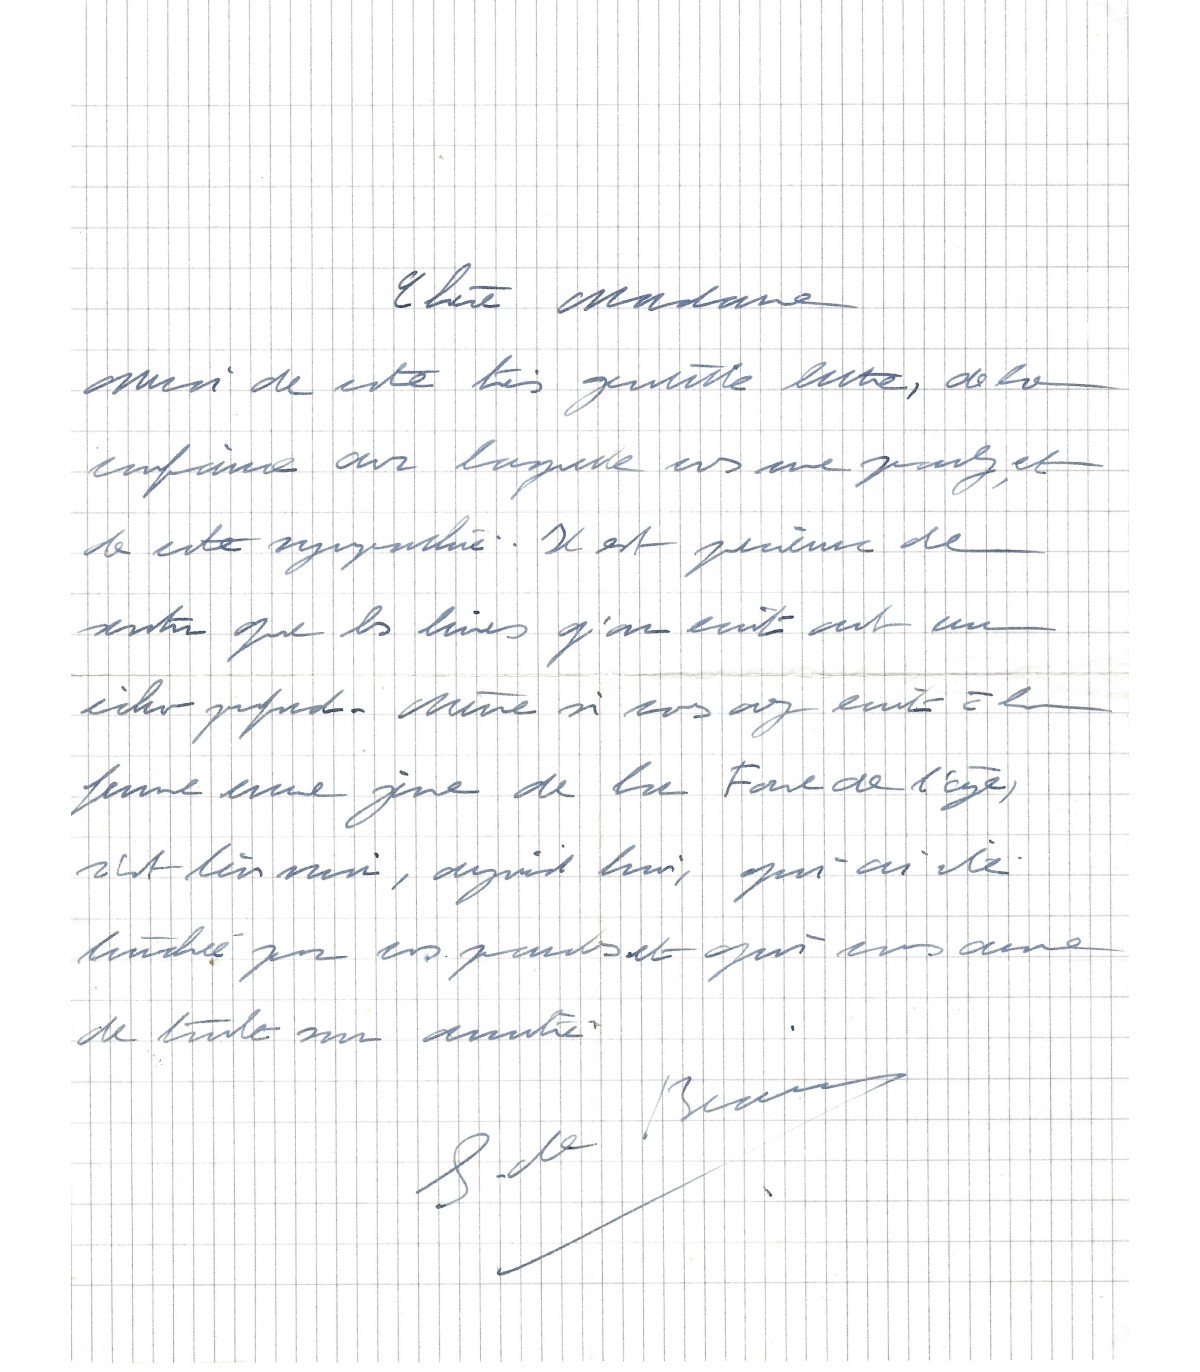 Chère Madame
Merci de cette très gentille lettre, de la
confiance avec laquelle vous me parlez, et
de cette sympathie. Il est précieux de
sentir que les livres qu'on écrit ont un
écho profond. Même si vous avez écrit à la
femme encore jeune de la Force de l'âge,
c'est bien moi, aujourd'hui, qui ai été
touchée par vos paroles et qui vous
de toute mon amitié.
S. de Beauvoir